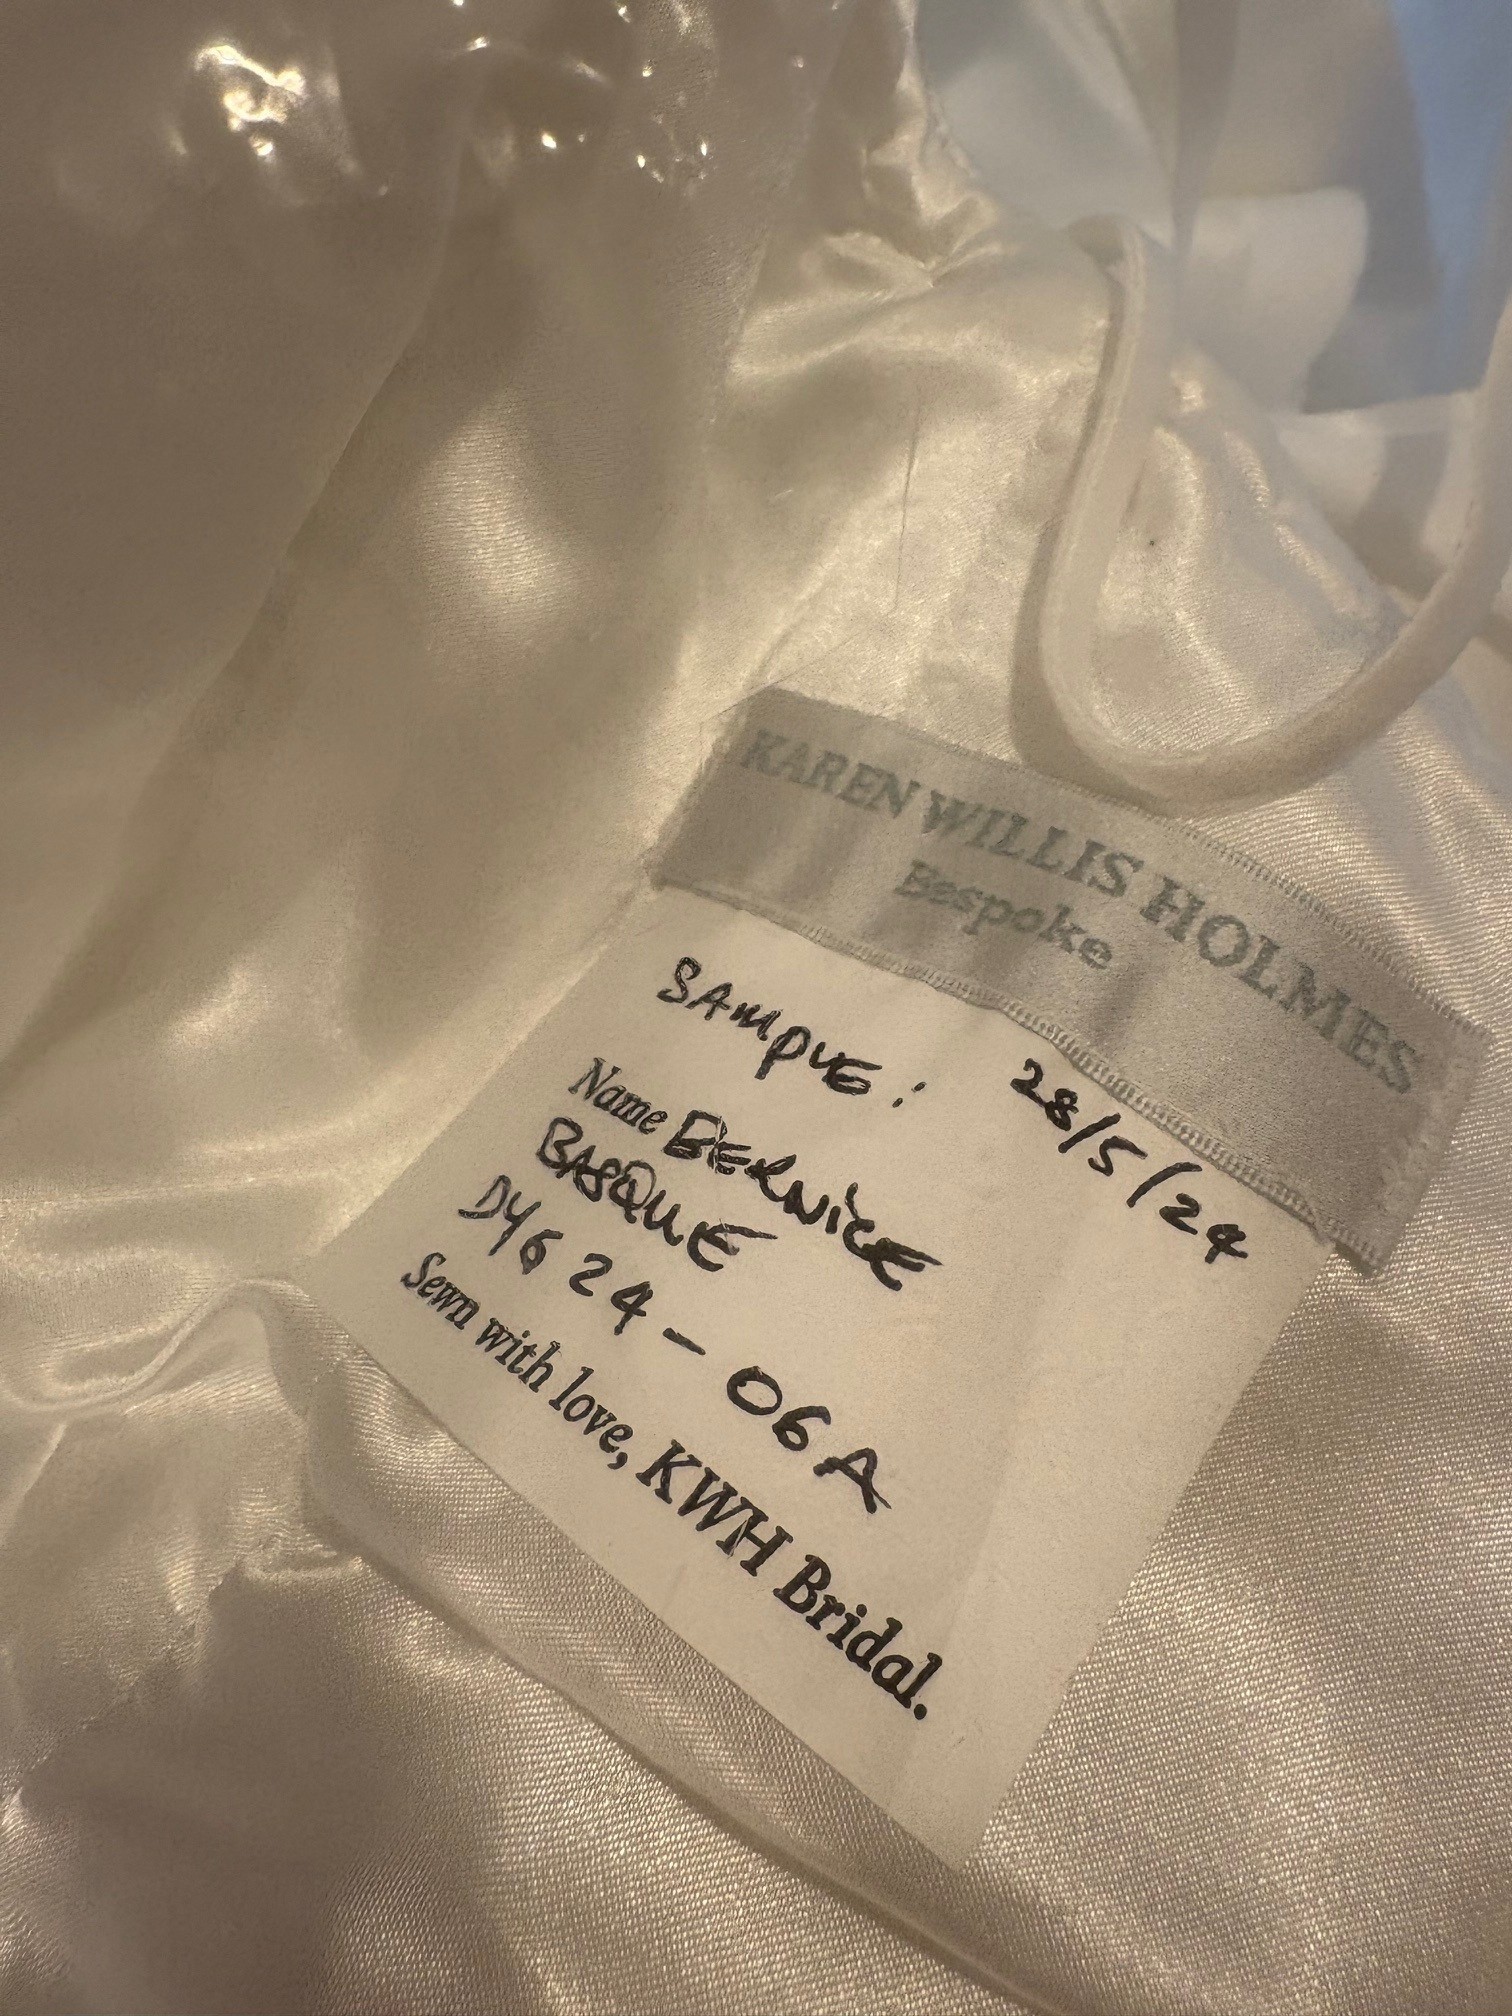 KAREN WILLIS HOLMES
Bespoke
SAMPLE: 28/5/24
Name BERNICE
BASQUE
DY6 24-06A
Sewn with love, KWH Bridal.